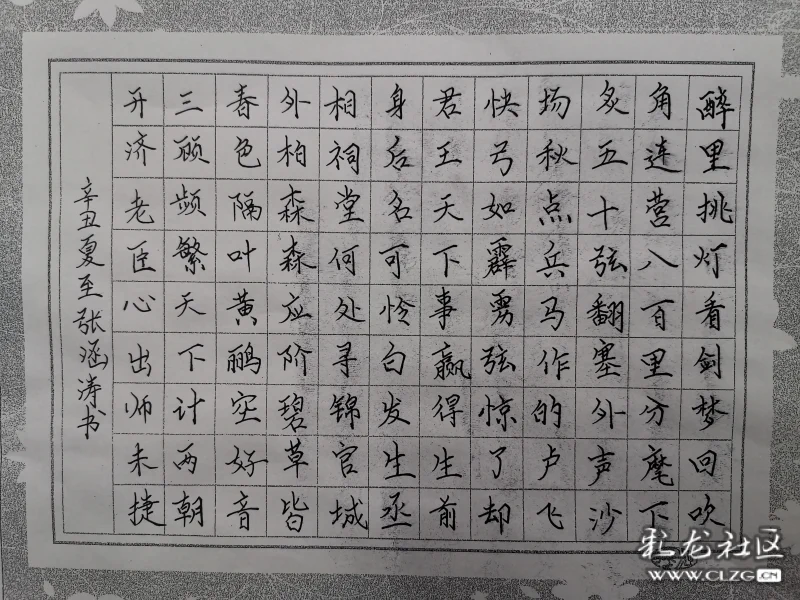 醉里挑灯看剑梦回吹
角连营八百里分麾下
炙五十弦翻塞外声沙
场秋点兵马作的卢飞
快弓如霹雳弦惊了却
君王天下事赢得生前
身后名可怜白发生丞
相祠堂何处寻锦官城
外柏森森应阶碧草皆
春色隔叶黄鹂空好音
三顾频繁天下计两朝
开济老臣心出师未捷
辛丑夏至张涵涛书
彩龙社区
WWW.CLZG.CN